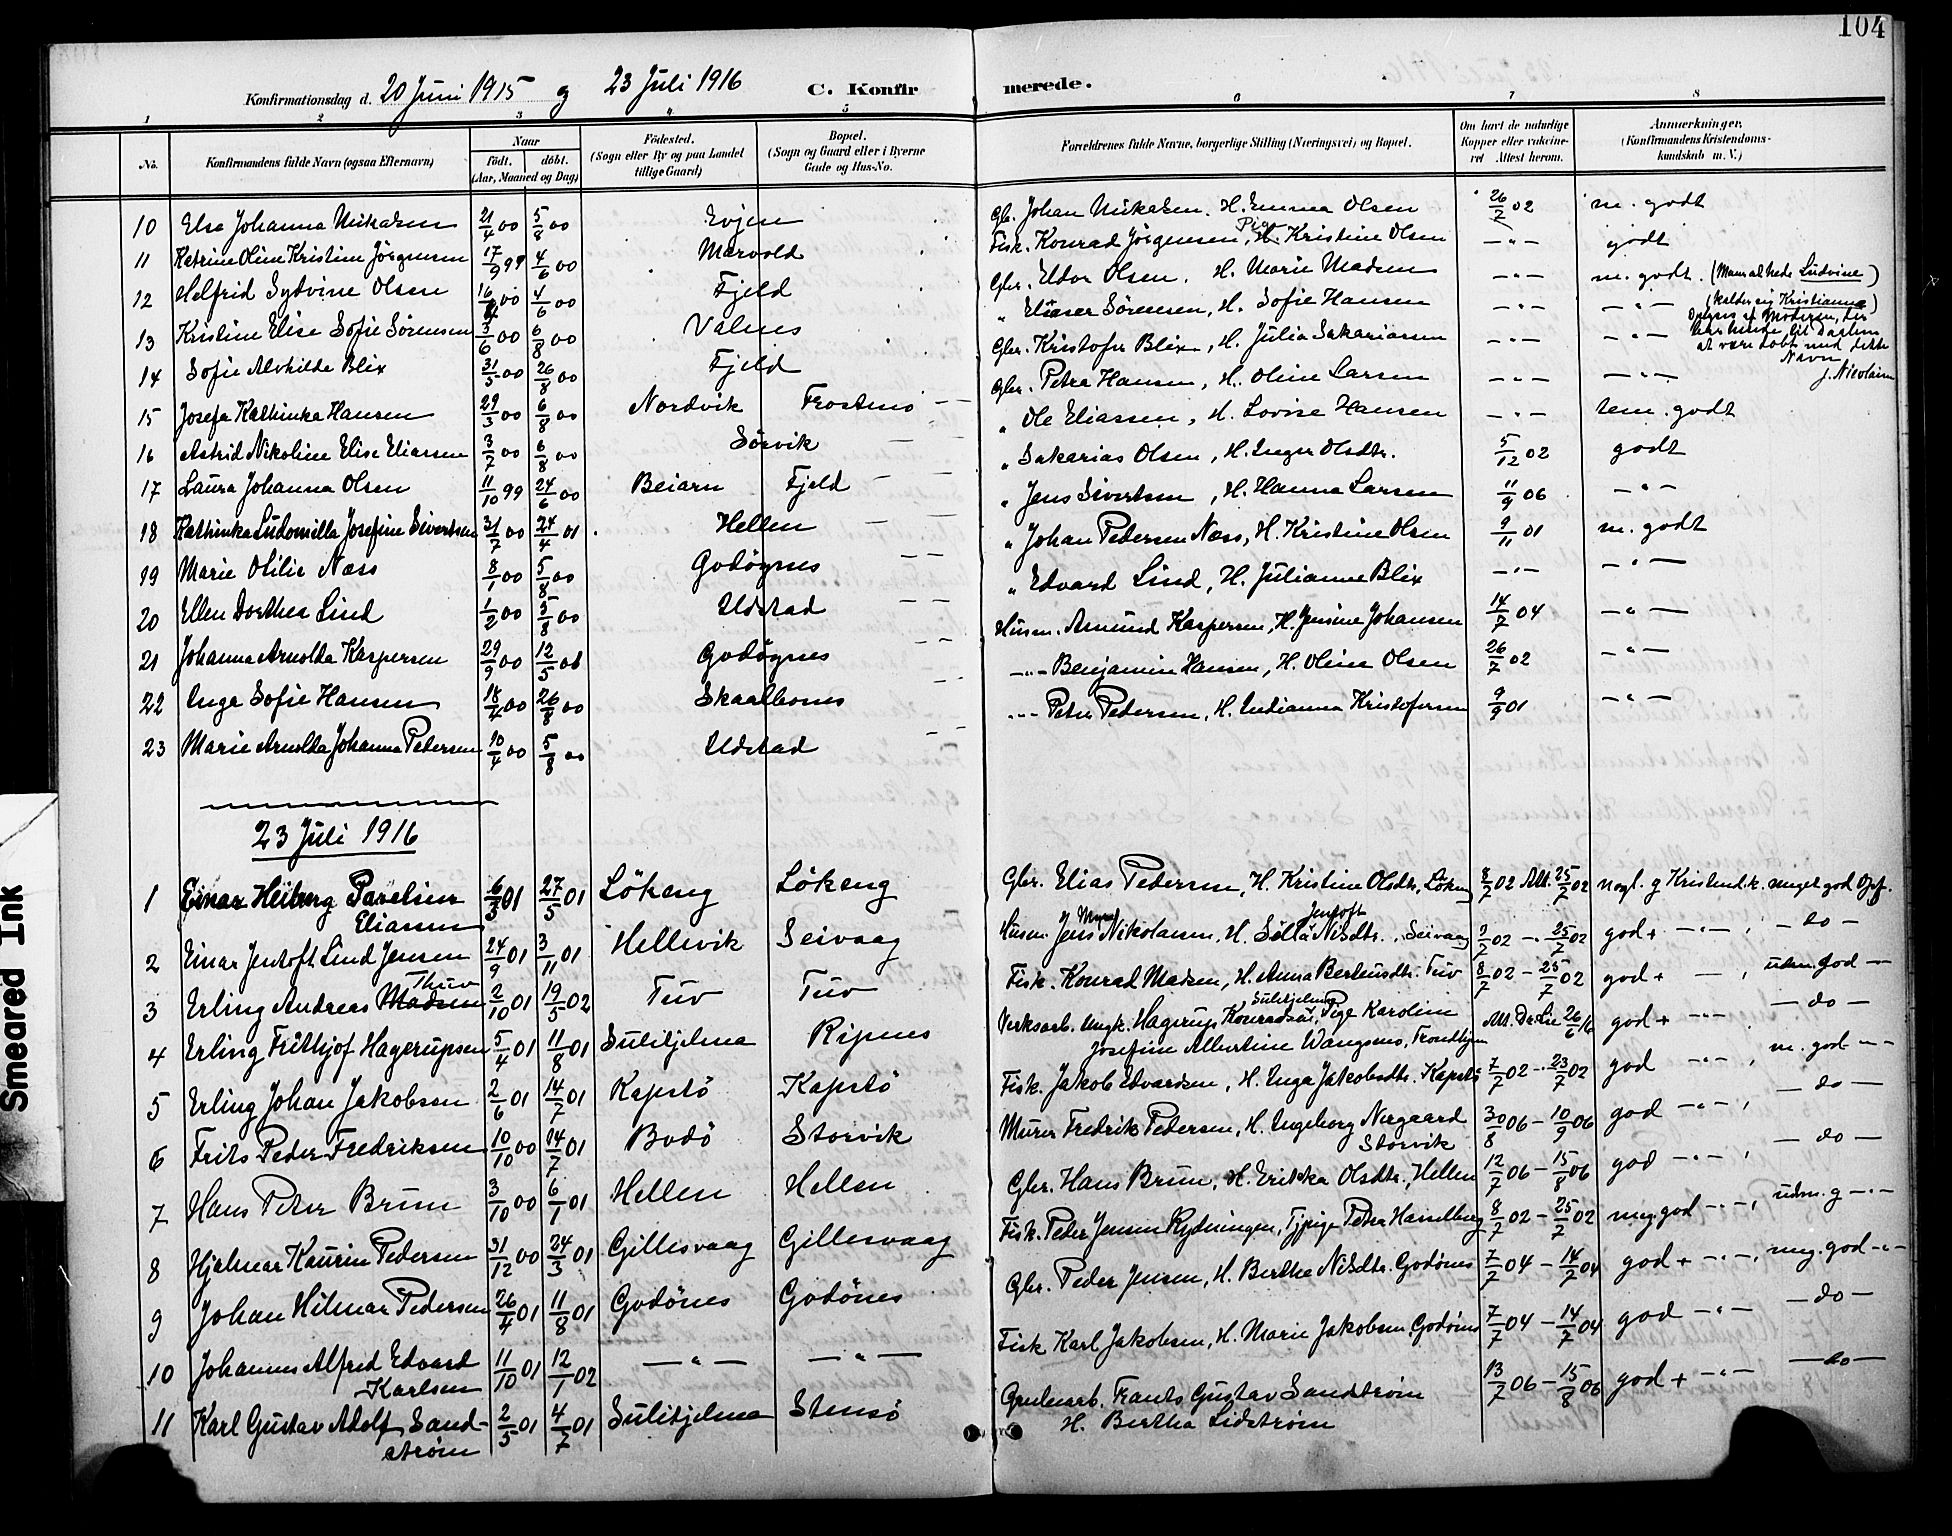 104
Konfirmationsdag d. 20 Juni 1915 og 23 Juli 1916 C. Konfirmerede.
1 2 3 4 5 6 7 8
No. Konfirmandens fulde Navn (ogsaa Efternavn) Naar født. døbt. (Aar, Maaned og Dag) Fødested. (Sogn eller By og paa Landet tillige Gaard) Bopæl. (Sogn og Gaard eller i Byerne Gade og Hus-No. Forældrenes fulde Navne, borgerlige Stilling (Næringsvei) og Bopæl. Om havt de naturlige Kopper eller vaccineret Attest herom. Anmærkninger. (Konfirmandens Kristendomskundskab m. V.)
10 Elsa Johanna Mikalsen 21/4 00 5/8 00 Evjen Gbr. Johan Mikalsen, H. Emma Olsen 26/7 02 m. godt
11 Katrine Oline Kristine Jørgensen 17/9 99 4/6 00 Mærvold Fisk. Konrad Jørgensen, Pige Kristine Olsen — " — godt
12 Helfrid Sydvine Olsen 16/4 00 4/6 00 Fjeld Gbr. Edvr Olsen, H. Marie Madsen — " — m. godt (Maa al hede Ludvine)
13 Kristine Elise Sofie Sørensen 3/6 00 6/8 00 Valnes " Eliaser Sørensen, H. Sofie Hansen — " — — " — (kalder sig Kristianna)
14 Sofie Alvhilde Blix 31/5 00 26/8 00 Fjeld Gbr. Kristofer Blix, H. Julia Sakariassen — " — — " —
Navn J. Nicolaisen
15 Josefa Kathinka Hansen 29/3 00 6/8 00 Nordvik Frostmo — — Gbr. Petra Hansen, H. Oline Larsen — " — — " —
16 Astrid Nikoline Elise Eliassen 3/7 00 6/8 00 Sørvik — — " Ole Eliassen, H. Lovise Hansen — " — tem. godt
17 Laura Johanna Olsen 11/10 99 24/6 00 Beiarn Fjeld — — " Sakarias Olsen, H. Inger Olsdtr. 5/12 02 godt
18 Kathinka Ludomilla Josefine Sivertsen 31/7 00 24/4 01 Hellen — — " Jens Sivertsen, H. Hanna Larsen 11/9 06 — " —
19 Marie Otilie Næss 8/1 00 5/8 00 Godøynes — — " Johan Pedersen Næss, H. Kristine Olsen 9/11 01 m. godt
20 Ellen Dorthea Lind 1/2 00 5/8 00 Udstad — — " Edvard Lind, H. Julianne Blix — " — — " —
21 Johanna Arnolda Kaspersen 29/9 00 12/5 06 Godøynes — — Husm. Amund Kaspersen, H. Jensine Johansen 14/7 04 — " —
22 Inga Sofie Hansen 14/4 00 26/8 00 Skaalbones — " — Benjamin Hansen, H. Oline Olsen 26/7 02 — " —
23 Marie Arnolda Johanna Pedersen 10/4 00 5/8 00 Udstad — " — Peter Pedersen, H. Indianna Kristofersen 9/9 01 — " —
23 Juli 1916
1 Einar Heiberg Parelius Eliassen 6/3 01 27/5 01 Løkeng Løkeng Gbr. Elias Pedersen, H. Kristine Olsdtr, Løkeng 8/7 02 Att. 25/7 02 nogl. g Kristend.k. meget god Opf.
2 Einar Jentoft Lind Jensen 24/9 01 3/11 01 Hellevik Seivaag Husm. Jens Nikolaisen, H. Nilsdtr. Jentoft, Seivaag 2/7 02 — 25/7 02 god + — " — , — do —
3 Erling Andreas Madsen Thuv 2/10 01 19/5 02 Tuv Tuv Fisk. Konrad Madsen, H. Anna Berteusdtr. Tuv 8/7 02 — 25/7 02 god + — , udm. god —
4 Erling Frithjof Hagerupsen 5/4 01 11/8 01 Sulitjelma Ripnes Verksarb. Ungk. Hagerup Konradsen, Sulitjelma, Pige Karoline Josefine Albertine Wangsmo, Trondhjem Att. Dr. Lie 26/6 16 god + — " — — do —
5 Erling Johan Jakobsen 2/6 01 14/7 01 Kapstø Kapstø Fisk. Jakob Edvardsen, H. Inga Jakobsdtr. Kapstø 7/7 02 — 23/7 02 god — " — , m. god — " —
6 Frits Peder Fredriksen 10/10 00 14/7 01 Bodø Storvik Murer Fredrik Pedersen, H. Ingeborg Nergaard Storvik 30/8 06 — 10/9 06 god — " — , — do —
7 Hans Peter Brun 3/10 00 6/1 01 Hellen Hellen Gbr. Hans Brun, H. Erikka Olsdtr., Hellen 12/7 06 — 15/8 06 god — " — , — do —
8 Hjalmar Kaurin Pedersen 31/12 00 24/3 01 Gillesvaag Gillesvaag Fisk. Peder Jensen Rydningen, Tjpige Petra Hasselberg 8/7 02 — 25/7 02 meg. god — " — , udm. g — " —
9 Johan Hilmar Pedersen 26/4 01 11/8 01 Godønes Godønes Gbr. Peder Jensen, H. Berthe Nilsdtr. Godønes 7/7 04 — 14/7 04 god + — " — , meg. god — " —
10 Johannes Alfred Edvard Karlsen 11/10 01 12/1 02 — " — — " — Fisk Karl Jakobsen, H. Marie Jakobsen, Godønes 7/7 04 — 14/7 04 god — " — — do —
11 Karl Gustav Adolf Sandstrøm 2/5 01 4/7 01 Sulitjelma Stensø Grubearb. Frants Gustav Sandstrøm H. Bertha Lidstrøm 13/7 06 — 15/8 06 god + — " — — do —
Smeared Ink